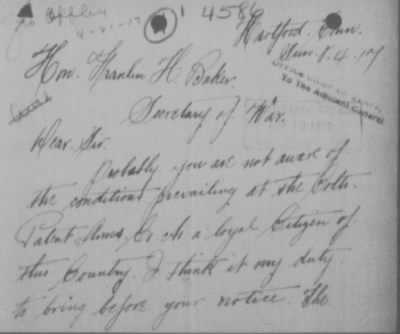 4586
4-21-17
Hartford, Conn.
Jun. 1-4-17
Hon. Franlin H. Baker.
To The Adjutant General
Secretary of War.
Dear Sir.
Probably you are not aware of
the conditions prevailing at the Colts.
Patent Arms, Co. As a loyal Citizen of
this Country. I think it my duty.
to bring before your notice. The